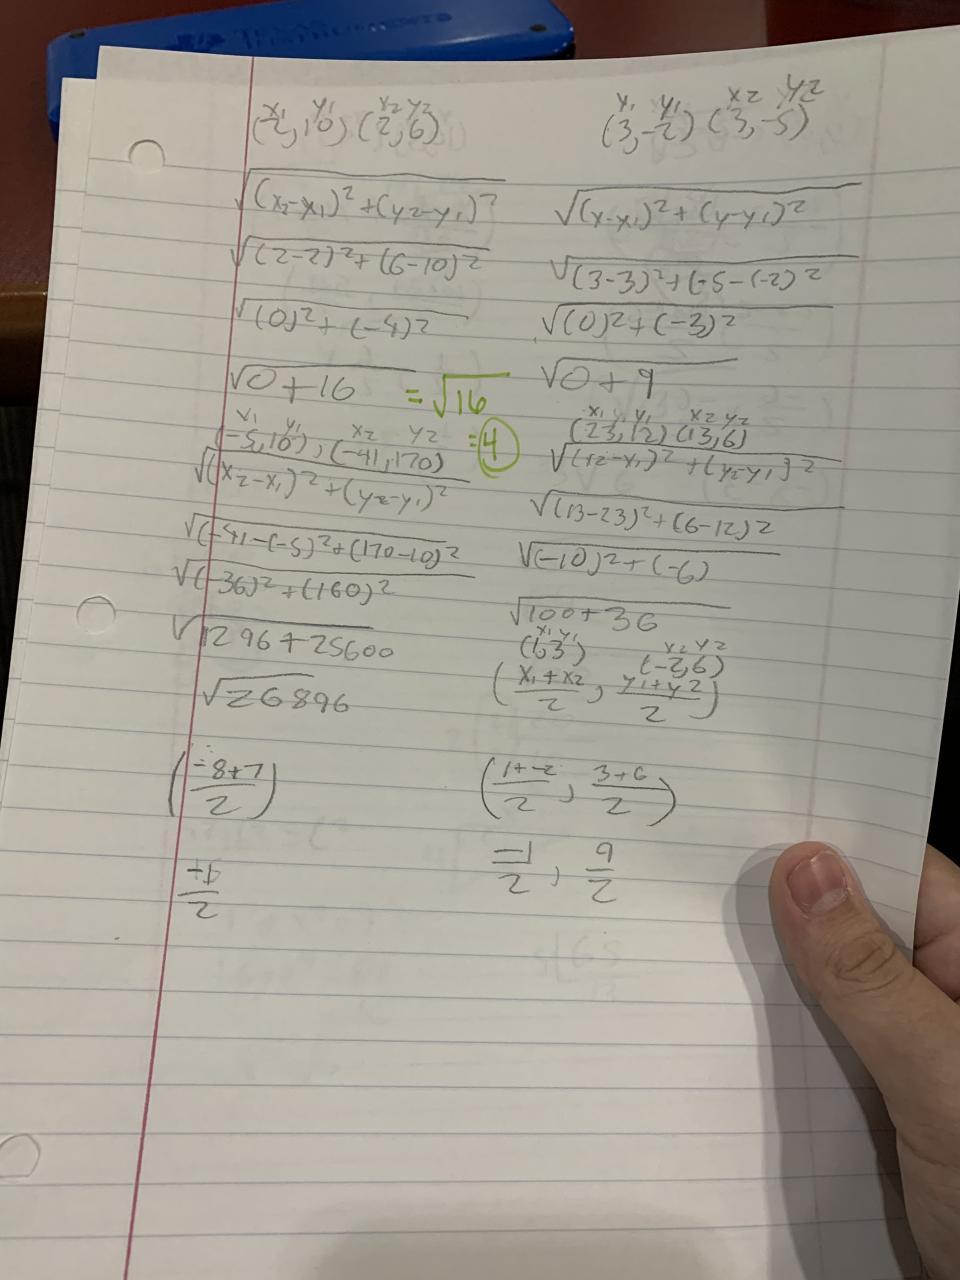 TEXAS INSTRUMENTS
x1 y1 x2 y2
(2, 10) (2, 6)
√(x2-x1)²+(y2-y1)²
√(2-2)²+(6-10)²
√(0)²+(-4)²
√0+16 = √16
= 4
x1 y1 x2 y2
(-5, 10), (-41, 170)
√(x2-x1)²+(y2-y1)²
√(-41-(-5)²+(170-10)²
√(-36)²+(160)²
√1296+25600
√26896
(-8+7/2)
x1 y1 x2 y2
(3,-2) (3,-5)
√(x-x1)²+(y-y1)²
√(3-3)²+(-5-(-2)²
√(0)²+(-3)²
√0+9
x1 y1 x2 y2
(23, 12) (13, 6)
√(x2-x1)²+(y2-y1)²
√(13-23)²+(6-12)²
√(-10)²+(-6)
√100+36
x1 y1 x2 y2
(1, 3) (-2, 6)
(x1+x2/2, y1+y2/2)
(1+-2/2, 3+6/2)
-1/2, 9/2